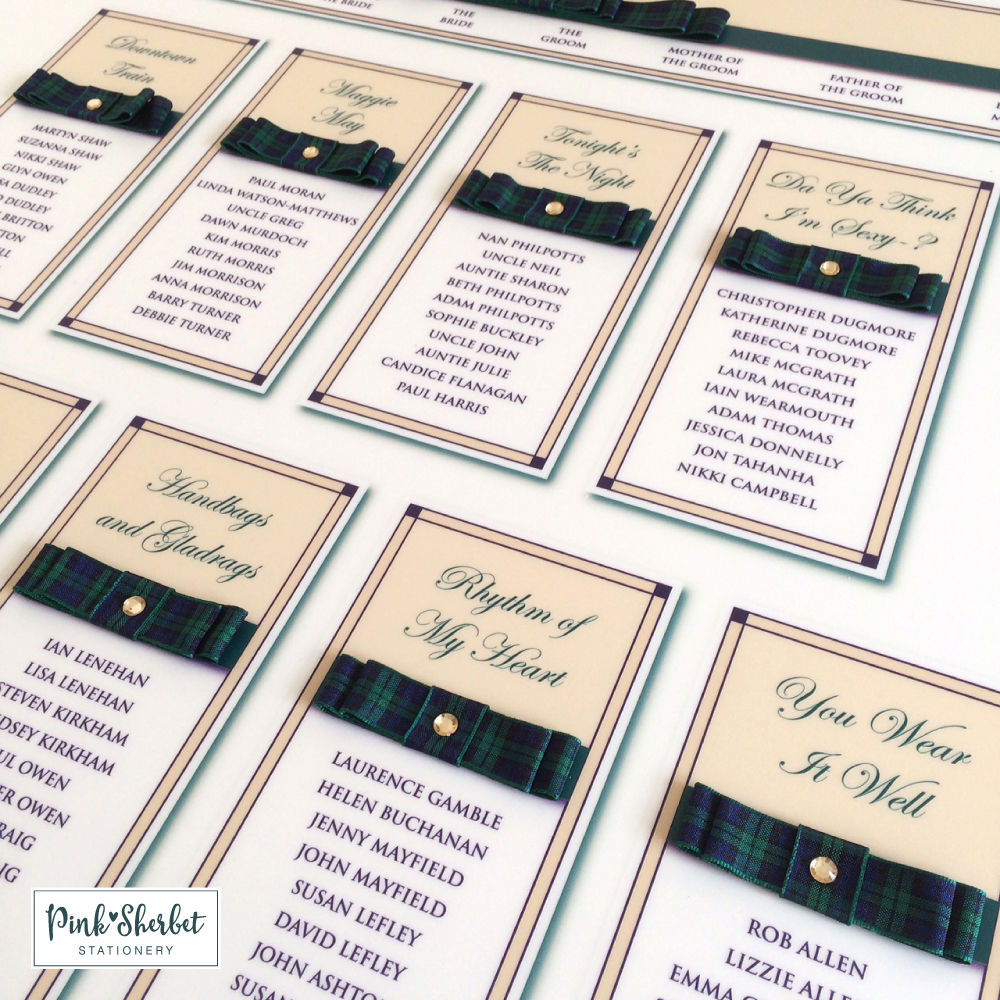 THE BRIDE
THE
BRIDE
THE
GROOM
MOTHER OF
THE GROOM
FATHER OF
THE GROOM
Downtown
Train
MARTYN SHAW
SUZANNA SHAW
NIKKI SHAW
GLYN OWEN
DUDLEY
DUDLEY
BRITTON
Maggie
May
PAUL MORAN
LINDA WATSON-MATTHEWS
UNCLE GREG
DAWN MURDOCH
KIM MORRIS
RUTH MORRIS
JIM MORRISON
ANNA MORRISON
BARRY TURNER
DEBBIE TURNER
Tonight's
The Night
NAN PHILPOTTS
UNCLE NEIL
AUNTIE SHARON
BETH PHILPOTTS
ADAM PHILPOTTS
SOPHIE BUCKLEY
UNCLE JOHN
AUNTIE JULIE
CANDICE FLANAGAN
PAUL HARRIS
Da Ya Think
I'm Sexy-?
CHRISTOPHER DUGMORE
KATHERINE DUGMORE
REBECCA TOOVEY
MIKE MCGRATH
LAURA MCGRATH
IAIN WEARMOUTH
ADAM THOMAS
JESSICA DONNELLY
JON TAHANHA
NIKKI CAMPBELL
Handbags
and Gladrags
IAN LENEHAN
LISA LENEHAN
STEVEN KIRKHAM
KIRKHAM
OWEN
OWEN
Rhythm of
My Heart
LAURENCE GAMBLE
HELEN BUCHANAN
JENNY MAYFIELD
JOHN MAYFIELD
SUSAN LEFLEY
DAVID LEFLEY
JOHN ASHTO
SUSAN
You Wear
It Well
ROB ALLEN
LIZZIE ALLEN
EMMA
Pink Sherbet
STATIONERY